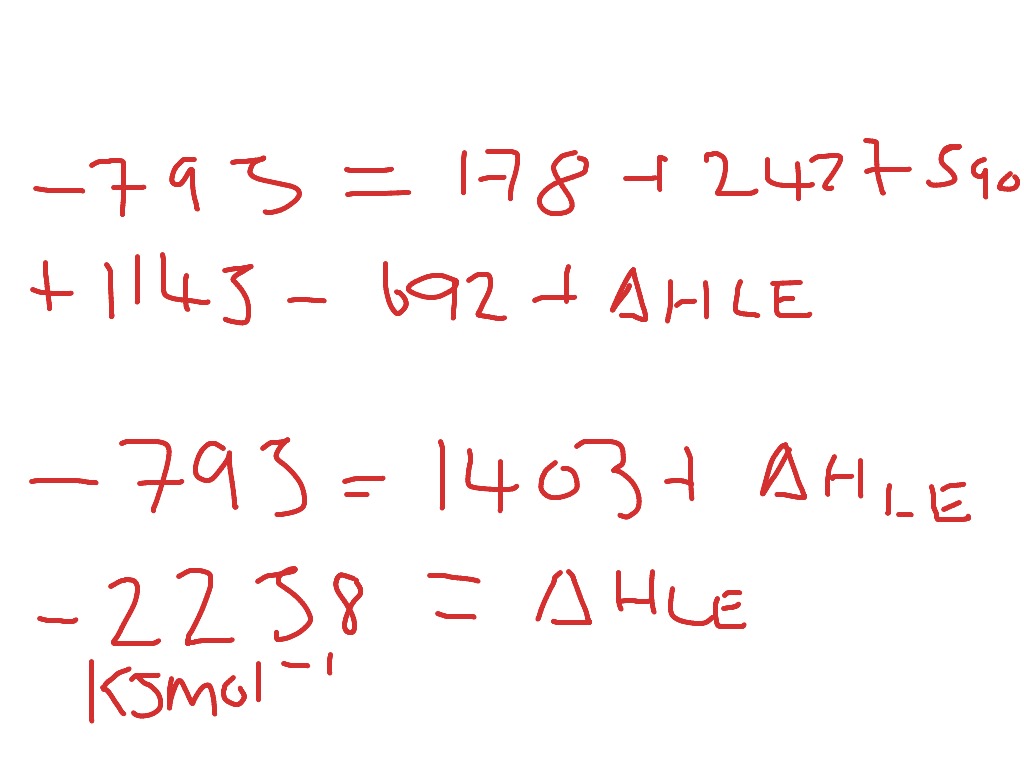 -793 = 178 + 247 + 590
+ 1143 - 692 + ΔHLE
-793 = 1403 + ΔH LE
-2238 = ΔHLE
KJmol⁻¹